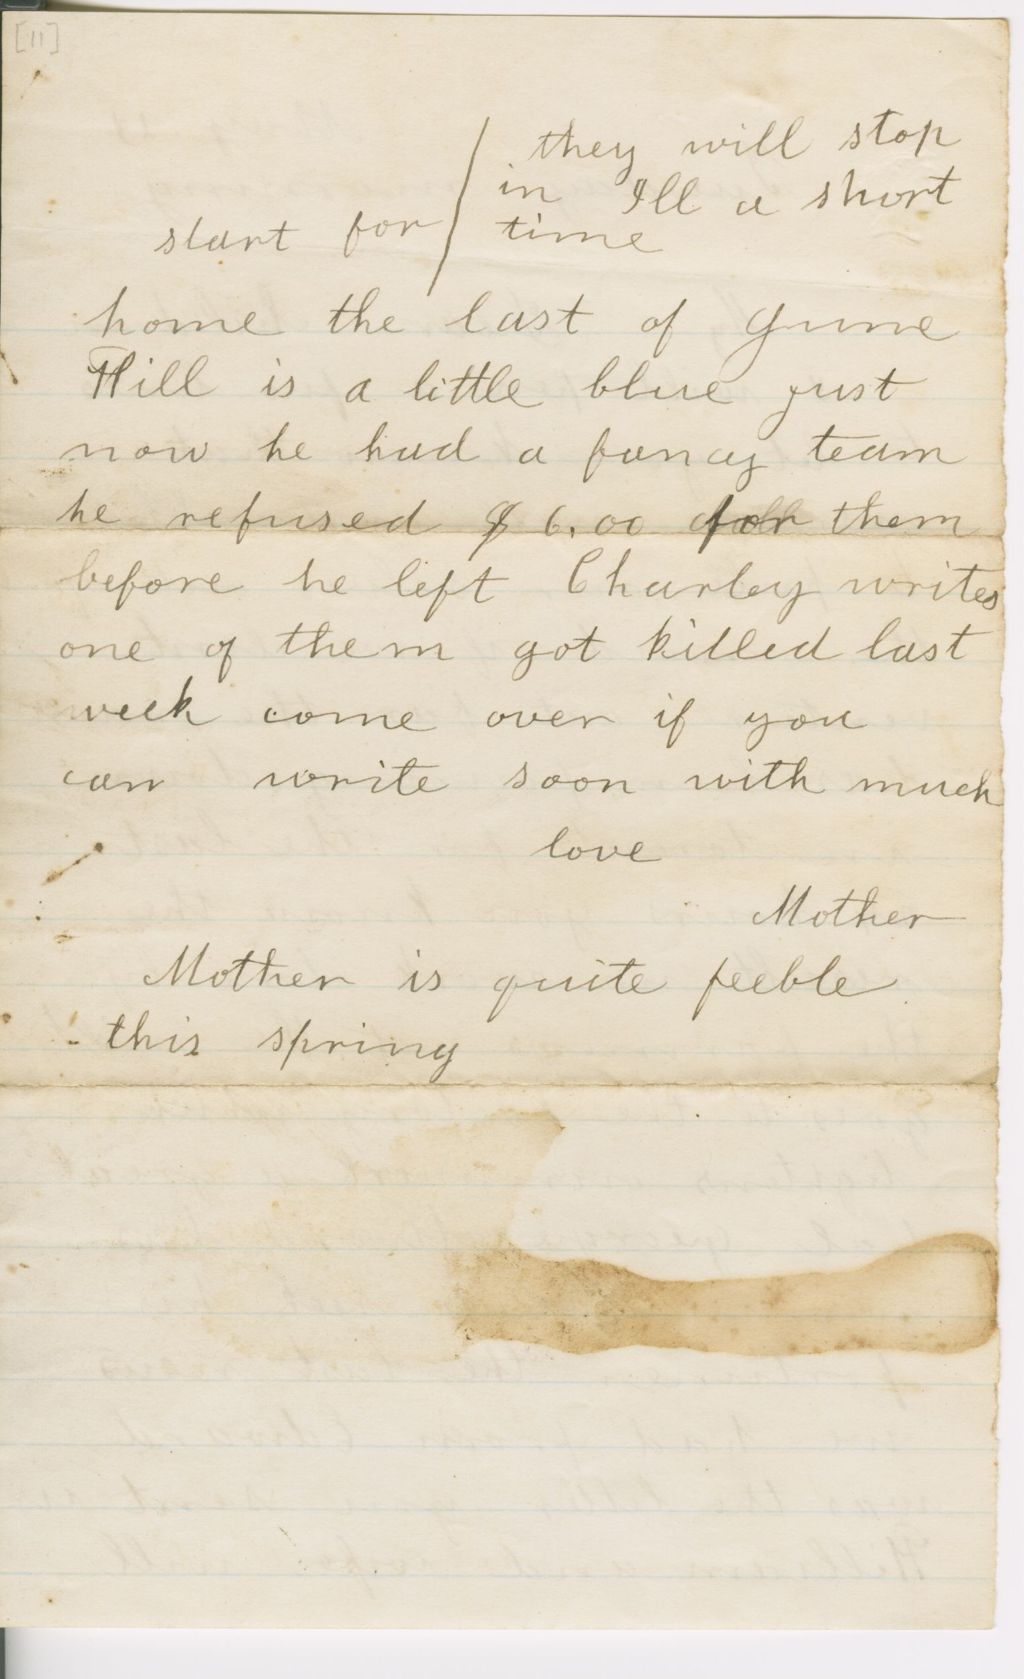 [11]
they will stop
in Ill a short
start for / time
home the last of June
Will is a little blue just
now he had a fancy team
he refused $ 6.00 for them
before he left Charley writes
one of them got killed last
week come over if you
can write soon with much
love
Mother
Mother is quite feeble
this spring